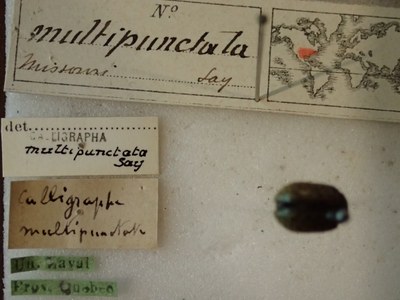 Nº
multipunctata
Missouri Say
det.
CALLIGRAPHA
multipunctata
Say
Calligrapha
multipunctata
Un. Laval
Prov. Quebec